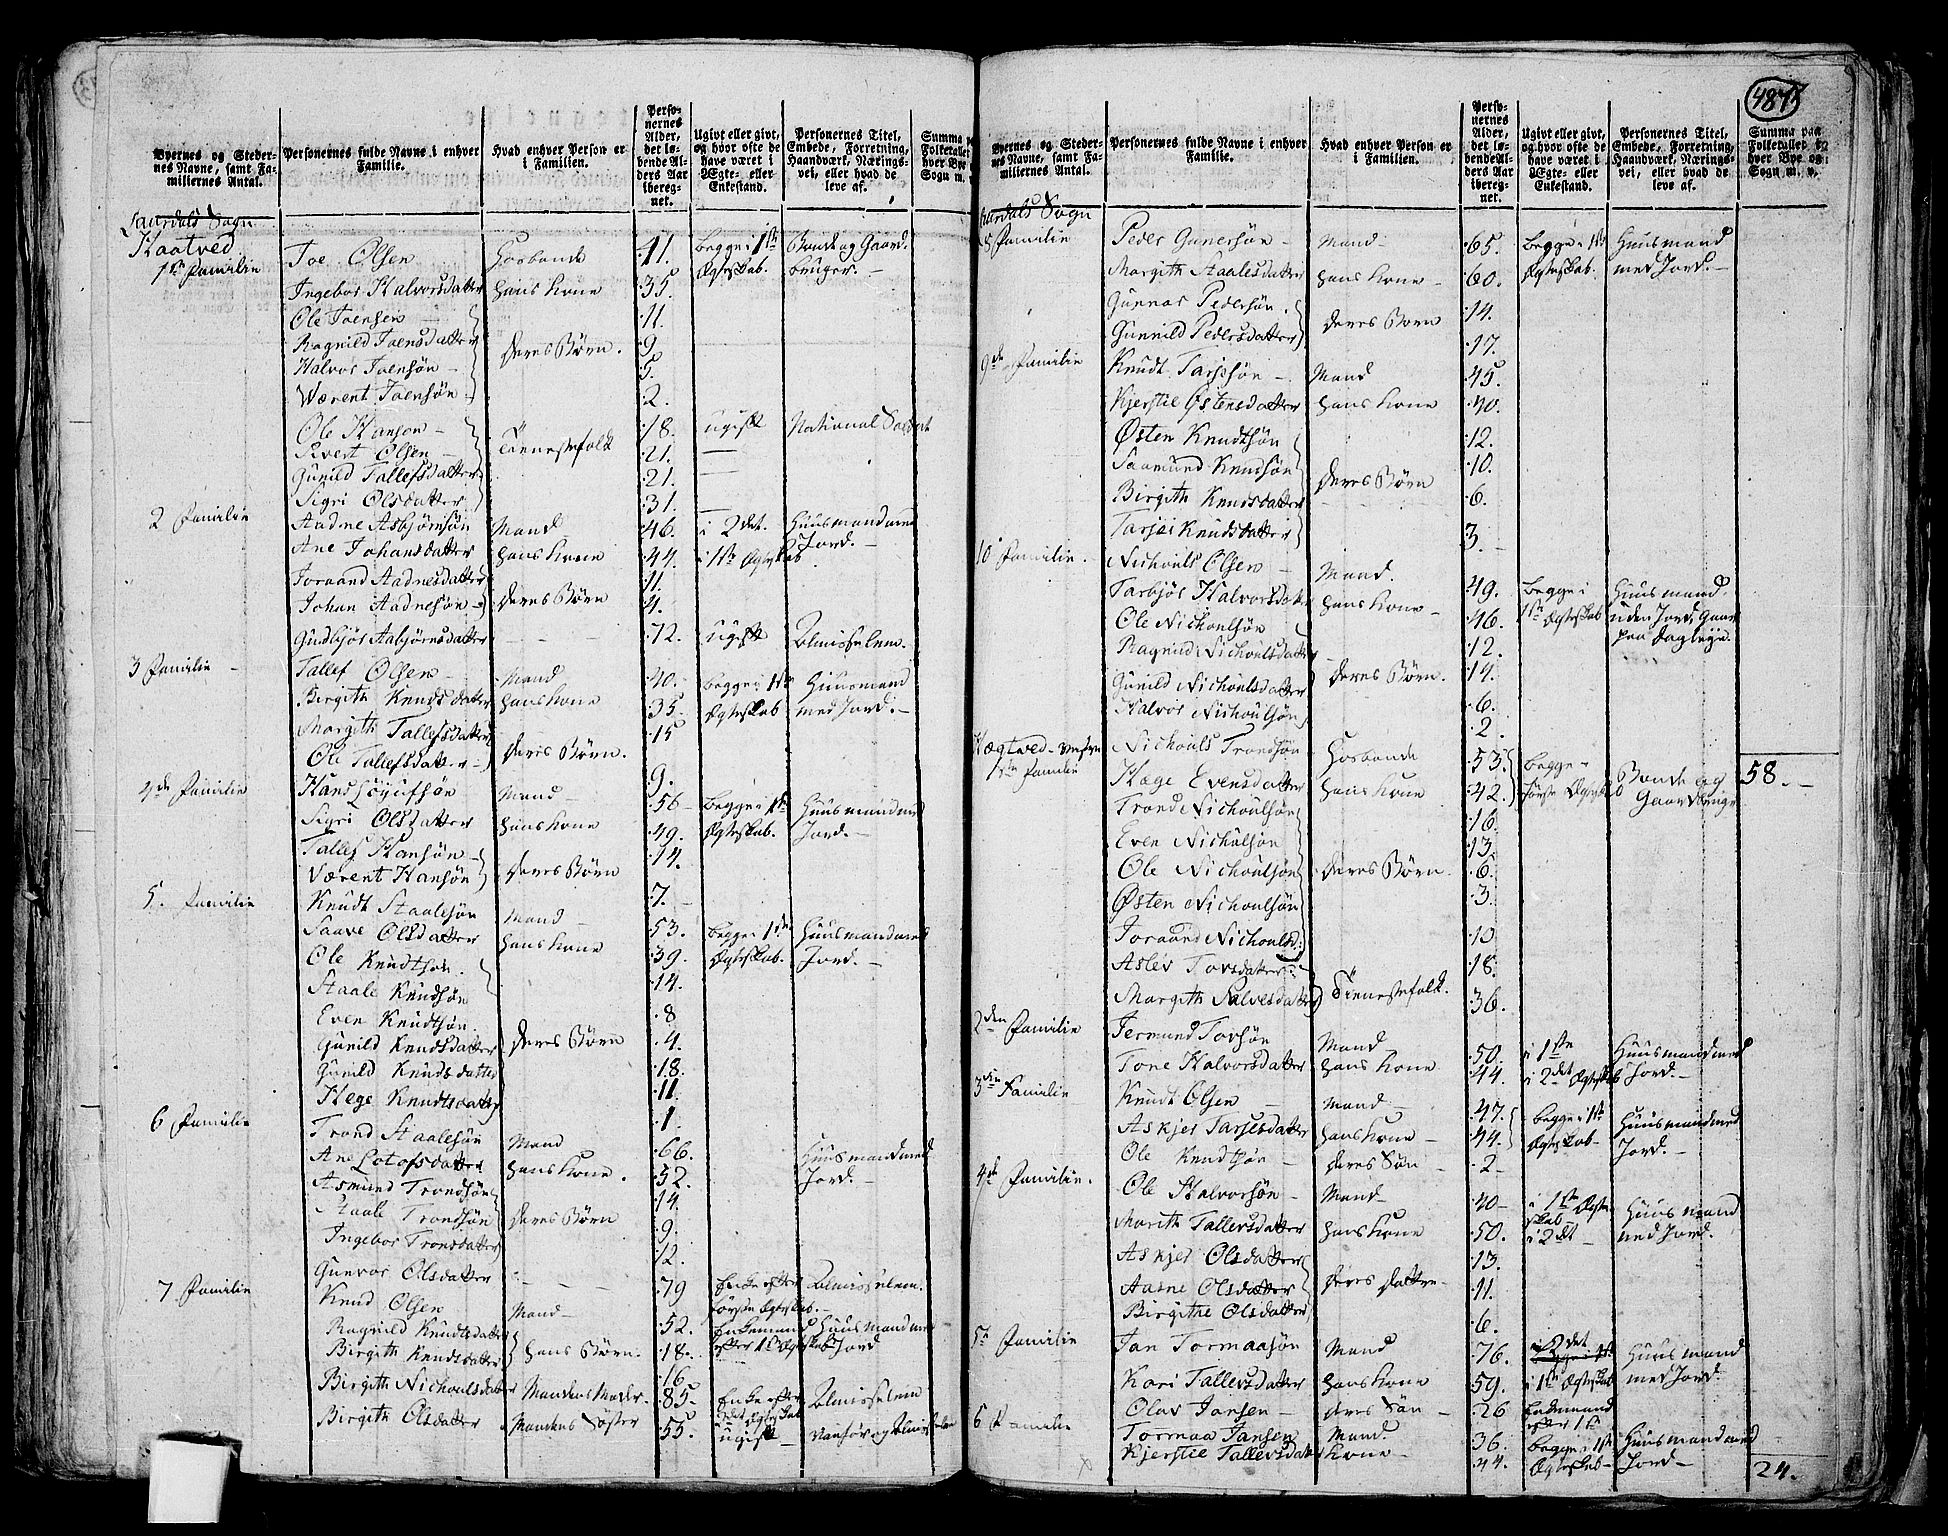 487
Byernes og Steder-
nes Navne, samt Fa-
miliernes Antal.
Personernes fulde Navne i enhver
Familie.
Hvad enhver Person er
i Familien.
Perso-
nernes
Alder,
det lø-
bende Al-
ders Aar
ibereg-
net.
Ugivt eller givt,
og hvor ofte de
have været i
Ægte- eller
Enkestand.
Personernes Titel,
Embede, Forretning,
Haandværk, Nærings-
vei, eller hvad de
leve af.
Summa
Folketallet
hver Bye
Sogn m.
Laurdals Sogn
Kaatved
1ste Familie Joe Olsen Hosbonde 41. begge i 1ste Bonde og Gaard-
Ægteskab. bruger.
Ingebor Halvorsdatter hans Kone 35.
Ole Joensen 11.
Ragnild Joensdatter deres Børn. 9
Halvor Joensøn 5.
Wærent Joensøn 2.
Ole Hanson 18. ugift National Soldat
Sivert Olsen Tienestefolk 21. —
Gunild Tallefsdatter 21. —
Sigri Olsdatter 31. —
2 Familie Aadne Asbjørnsøn Mand 46. i 2det. Huusmand med
Ane Johansdatter hans Kone 44. i 1ste Ægteskab Jord.
Joraand Aadnesdatter 11.
Johan Aadnesøn deres Børn 4.
Gudbjør Asbjørnsdatter 72. ugift Almisselem.
3 Familie Tallef Olsen Mand 40. begge i 1ste Huusmand
Birgith Knudsdatter hans Kone 35. Ægteskab med Jord.
Margith Tallefsdatter 15
Ole Tallefsdatter deres Børn. 9.
4de Familie Hans Mand 56 begge i 1ste Huusmand med
Sigri Olsdatter hans Kone 49. Ægteskab. Jord.
Tallef Hansøn 14.
Værent Hansøn deres Børn 7.
5. Familie Knudt Staalesøn Mand 53. begge i 1ste Huusmand med
Saave Olsdatter hans Kone 39. Ægteskab. Jord.
Ole Knudtsøn. 14.
Staale Knudsøn 8
Even Knudtsøn. 4.
Gunild Knudsdatter deres Børn 18.
Gunild Knudsdatter 11.
Hege Knudtsdatter 1.
6 Familie Trond Staalesøn Mand 66. Huusmand med
Ane Lotofsdatter hans Kone. 52. Jord.
Asmund Trondsøn 14.
Staale Trondsøn deres Børn 9.
Ingebor Tronsdatter 12.
Gunvor Olsdatter 79 Enke efter Almisselem.
første Ægteskab.
7 Familie Knud Olsen Mand 52. Enkemand Huusmand med
efter 1ste Ægteskab Jord
Ragnild Knudtsdatter 18.
Birgith Knudsdatter hans Børn. 16
Birgith Nichoulsdatter Mandens Moder. 85. Enke efter Almisselem
Ægteskab
Birgith Olsdatter Mandens Søster 55. ugift Vanfør og Almisselem
Byernes og Steder-
nes Navne, samt Fa-
miliernes Antal.
Personernes fulde Navne i enhver
Familie.
Hvad enhver Person er
i Familien.
Perso-
nernes
Alder,
det lø-
bende Al-
ders Aar
ibereg-
net.
Ugivt eller givt,
og hvor ofte de
have været i
Ægte- eller
Enkestand.
Personernes Titel,
Embede, Forretning,
Haandværk, Nærings-
vei, eller hvad de
leve af.
Summa paa
Folketallet i
hver Bye og
Sogn m. v.
Laurdals Sogn
8 Familie Peder Gunersøn Mand 65. begge i 1ste Huusmand
Margith Staalesdatter hans Kone 60. Ægteskab. med Jord.
Gunnar Pedersøn. 14.
Gunnild Pedersdatter deres Børn 17.
9de Familie Knudt Tarjesøn Mand 45.
Kjerstie Østensdatter hans Kone 40.
Østen Knudtsøn 12.
Saamund Knudsøn 10.
Birgith Knudsdatter deres Børn 6.
Tarjei Knudsdatter 3.
10 Familie. Nichouls Olsen Mand. 49. begge i Huusmand
Tarbjør Halvorsdatter hans Kone 46. 1ste Ægteskab uden Jord, Gaar
Ole Nichoulsøn 12. paa Dagleye.
Ragnild Nichoulsdatter 14.
Gunild Nichoulsdatter deres Børn. 6.
Halvor Nichoulsøn 2.
Hægtved
1ste Familie Nichouls Trondsøn Hosbonde 53. begge i Bonde og 58.
Hæge Evensdatter hans Kone 42. første Gaardbruger
Trond Nichoulsøn 16.
Even Nichulsøn 13.
Ole Nichoulsøn deres Børn. 6.
Østen Nichoulsøn 3.
Joraand Nichoulsd: 10
Aslev Torsdatter 18.
Margith Salvesdatter Tienestefolk. 36.
2den Familie Jermund Torsøn Mand 50. i 1ste Huusmand med
Tone Halvorsdatter hans Kone 44. i 2det Ægteskab Jord.
3die Familie Knudt Olsen Mand 47. begge i 1ste Huusmand med
Askjer Tarjesdatter hans Kone 44. Ægteskab Jord.
Ole Knudtsøn deres Søn 2
4de Familie. Ole Halvorsøn Mand 40 i 1ste Ægte- Huusmand
skab
Marith Tallevsdatter hans Kone 50. i 2det med Jord.
Askjer Olsdatter 13.
Aasne Olsdatter deres Døttre 11.
Birgithe Olsdatter 6.
5te Familie Jan Tormaasøn Mand 76. i 2det Huusmand
Kari Tallevsdatter hans Kone 59. i 1ste Ægteskab med Jord.
Olav Jansen deres Søn 26 Enkemand
efter 1ste
6 Familie Tormaa Jansen Mand 36. begge i 1ste Huusmand med
Kjerstie Tallevsdatter Kone 44. Ægteskab Jord
24.